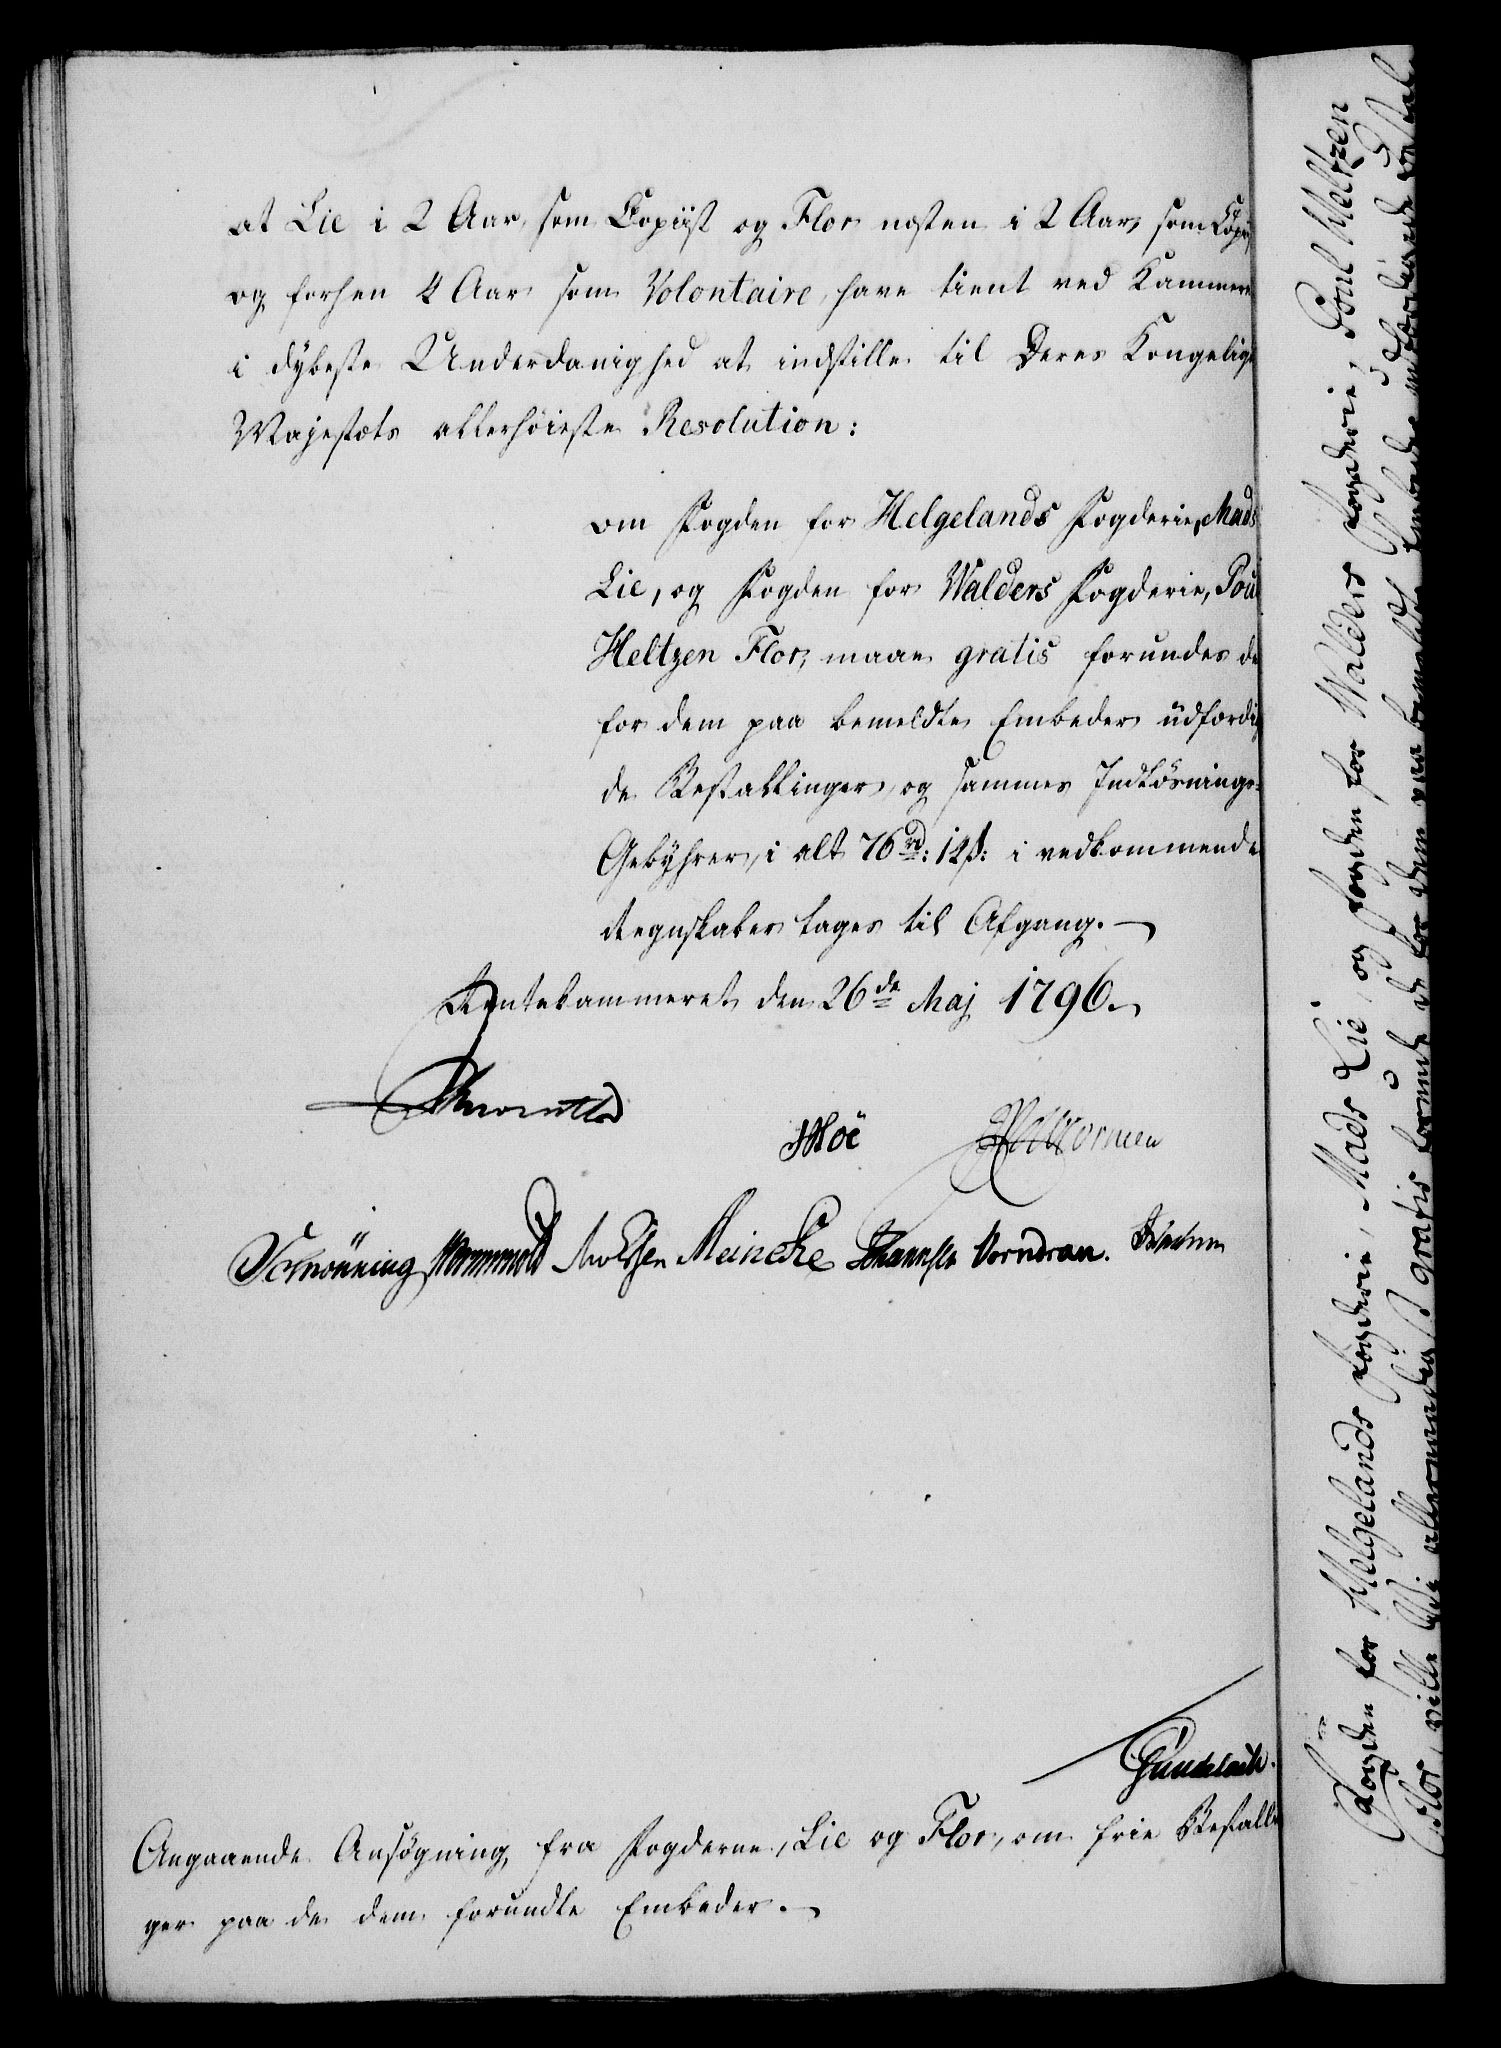 at Lie i 2 Aar, som Copiist og Flor næsten i 2 Aar, som Copi
og forhen 4 Aar som Volontaire, have tient ved Kammere
i dybeste Underdanighed at indstille til Deres Kongelige
Majestæts allerhøieste Resolution:
om Fogden for Helgelands Fogderie, Mads
Lie, og Fogden for Walders Fogderie, Poul
Heltzen Flor, maae gratis forundes de
for dem paa bemeldte Embeder udfærdig
de Bestallinger, og sammes Indløsnings-
Gebyhrer, i alt 76 rd: 12 ß: i vedkommende
Regnskaber tages til Afgang.
Rentekammeret den 26de Maj 1796.
Moe
Schmönning Meincke Johannsen Vorndran.
Angaaende Ansøgning fra Fogderne, Lie og Flor, om frie Bestallin
ger paa de dem forundte Embeder.
Fogden for Helgelands Fogderie, Mads Lie, og Fogden for Walders Fogderie, Poul Heltzen
Flor, ville Vi allernaadigst gratis forunde de for dem paa bemeldte